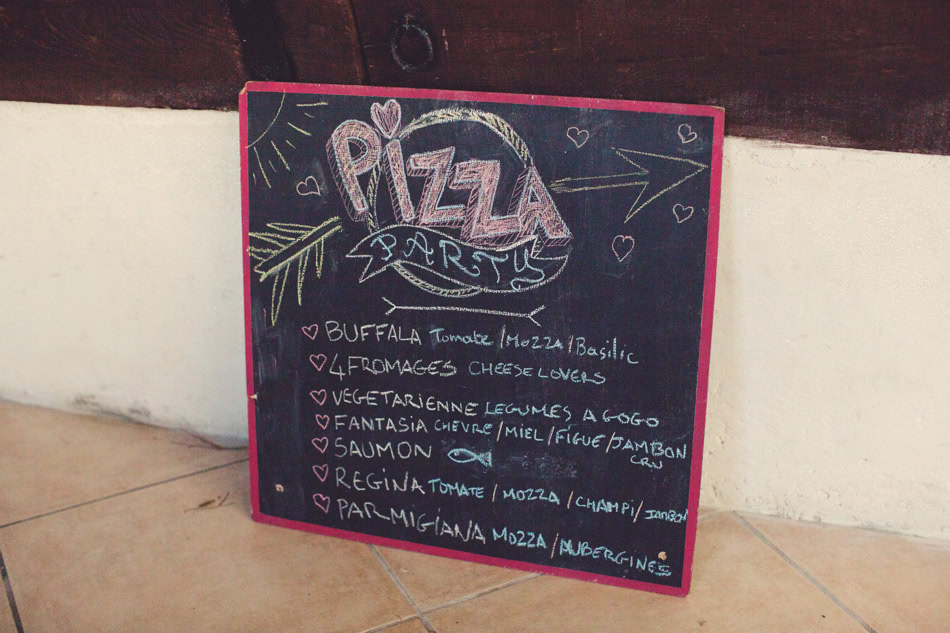 PIZZA
PARTY
BUFFALA Tomate / MOZZA / Basilic
4 FROMAGES CHEESE LOVERS
VEGETARIENNE LEGUMES A GOGO
FANTASIA CHEVRE / MIEL / FIGUE / JAMBON
CRU
SAUMON
REGINA TOMATE / MOZZA / CHAMPI / JAMBON
PARMIGIANA MOZZA / AUBERGINES